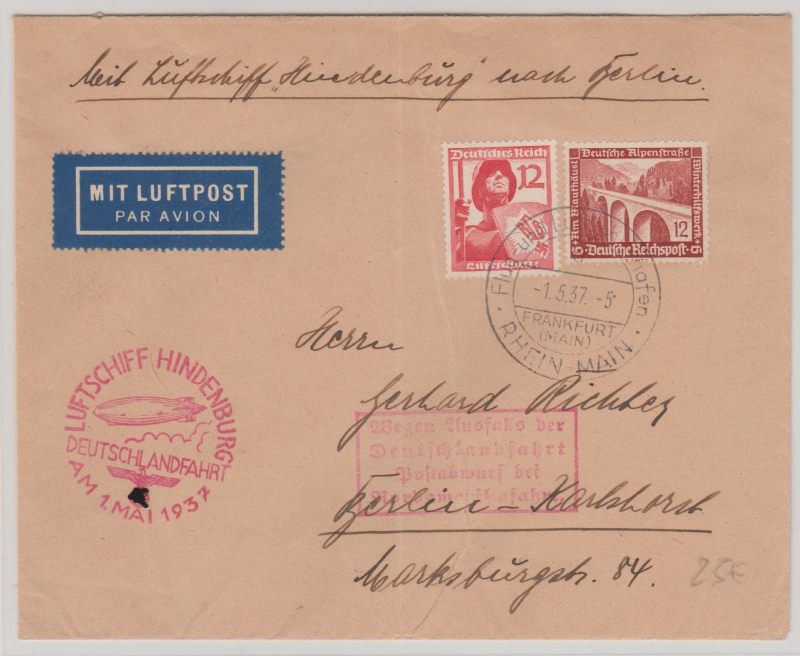 Mit Luftschiff „Hindenburg" nach Berlin.
MIT LUFTPOST
PAR AVION
Deutsches Reich
12
Luftschutz
Deutsche Alpenstraße
Am Mauthäusl
Winterhilfswerk
12
6 · Deutsche Reichspost · 6
Flug- und Luftschiffhafen
-1.5.37.-5
FRANKFURT
(MAIN)
· RHEIN-MAIN ·
LUFTSCHIFF HINDENBURG
DEUTSCHLANDFAHRT
AM 1. MAI 1937
Herrn
Gerhard Richter
Wegen Ausfalls der
Deutschlandfahrt
Postabwurf bei
Nordamerikafahrt
Berlin-Karlshorst
Marksburgstr. 84.
25€